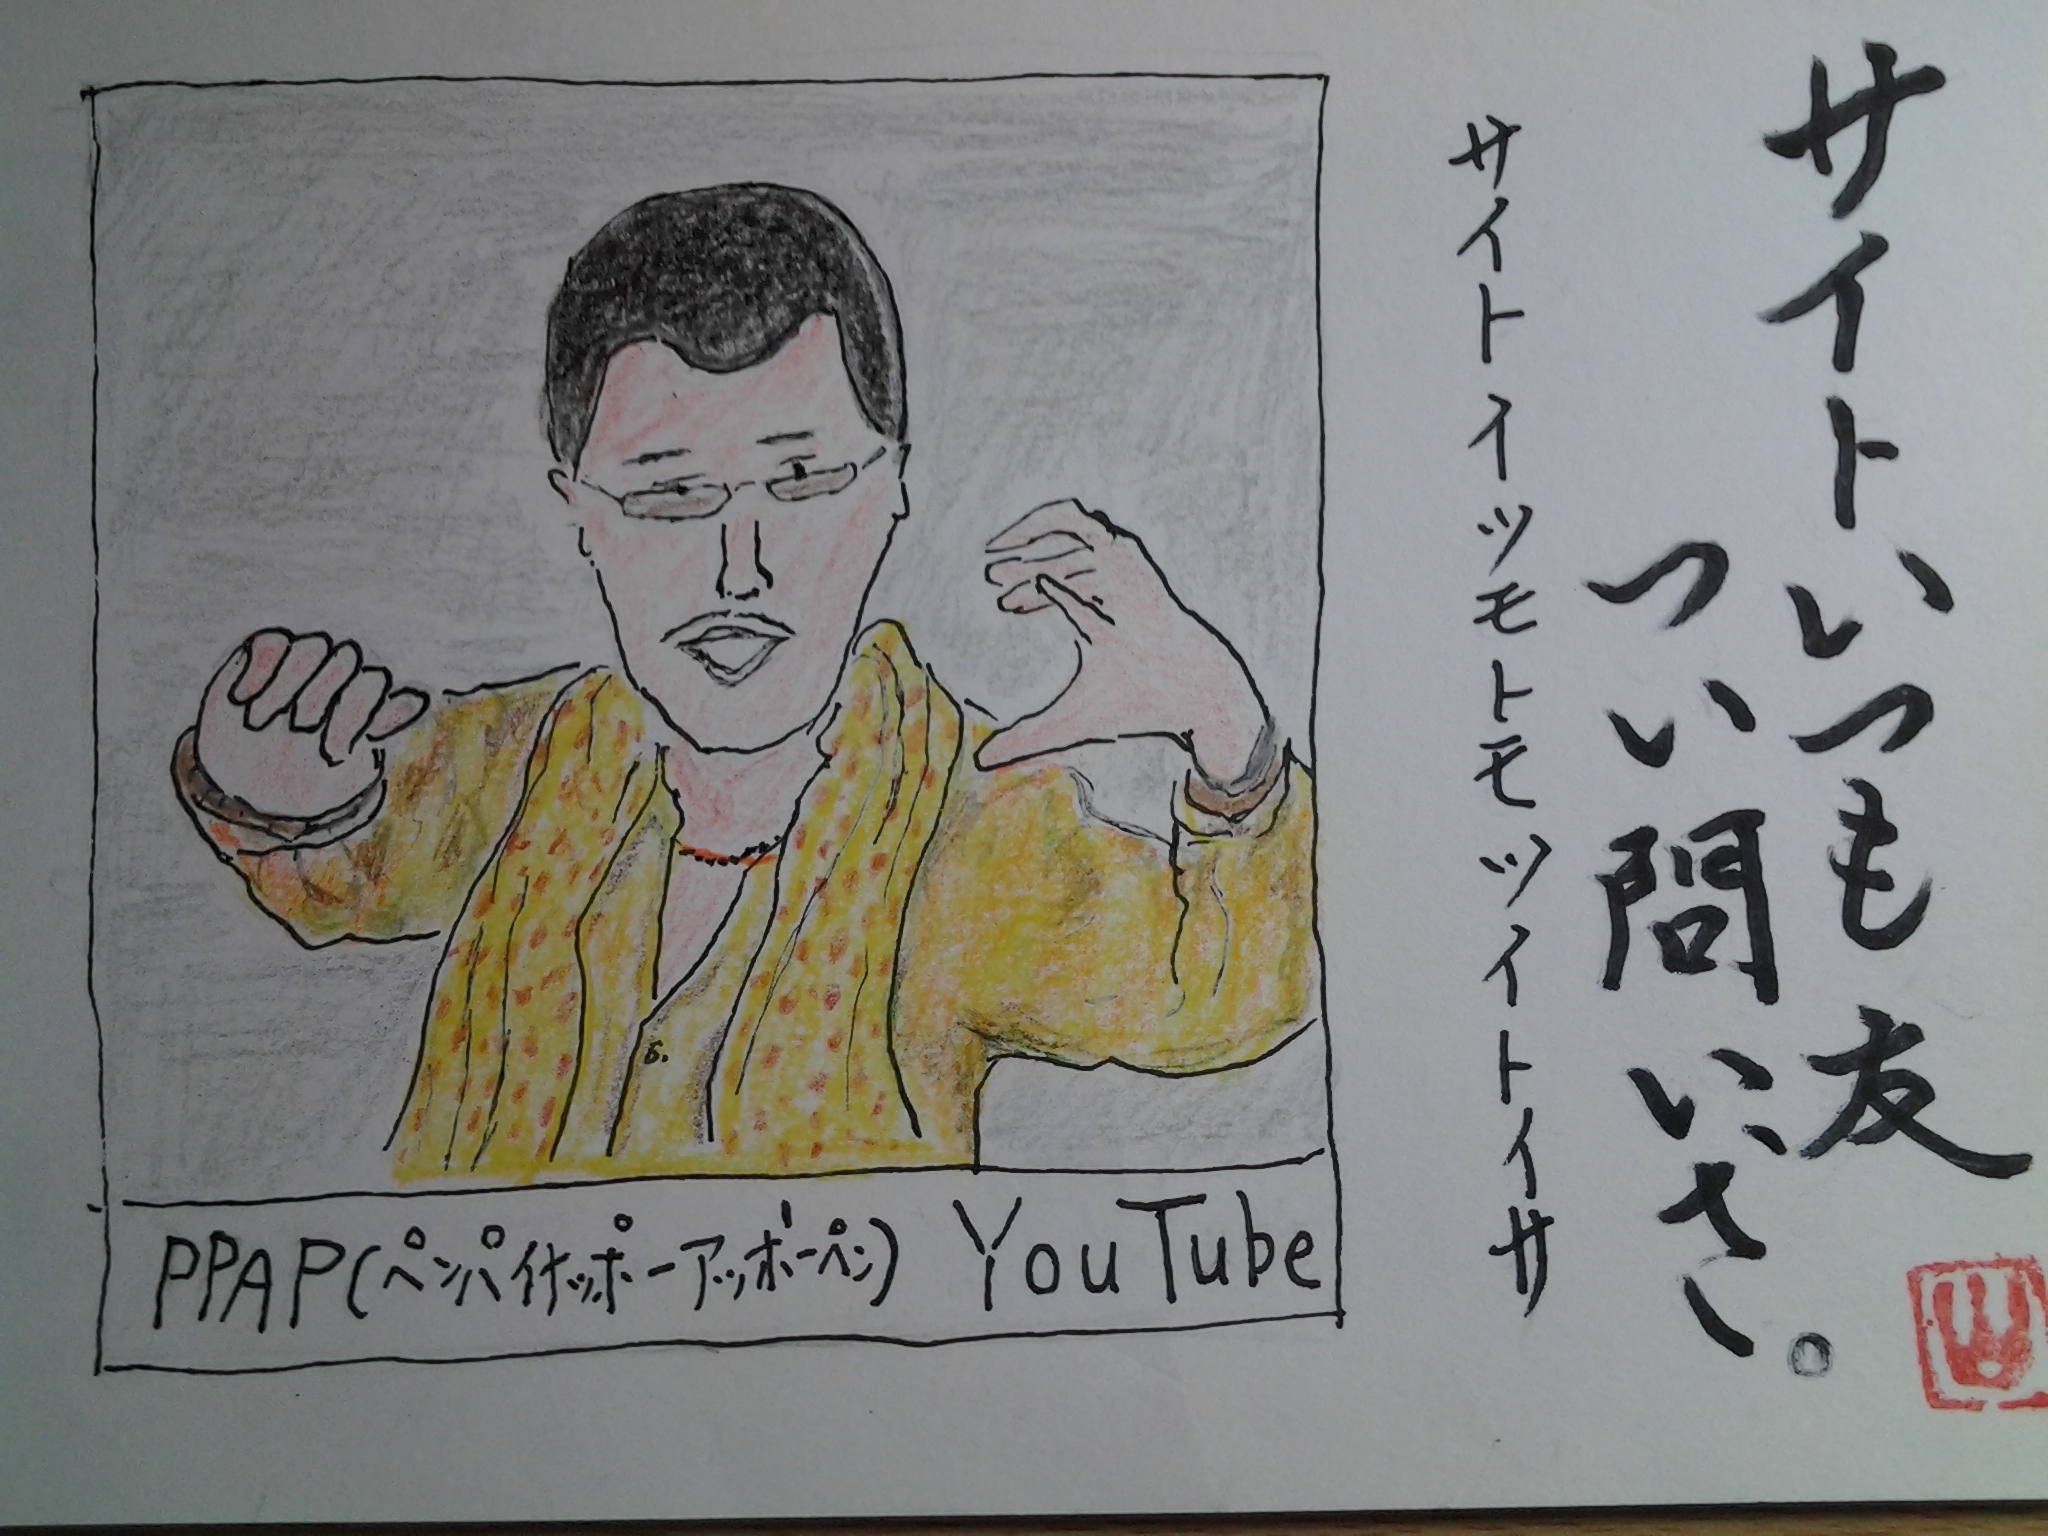 サイトいつも友
つい問いさ。
サイトイツモトモツイトイサ
PPAP(ペンパイナッポーアッポーペン) YouTube